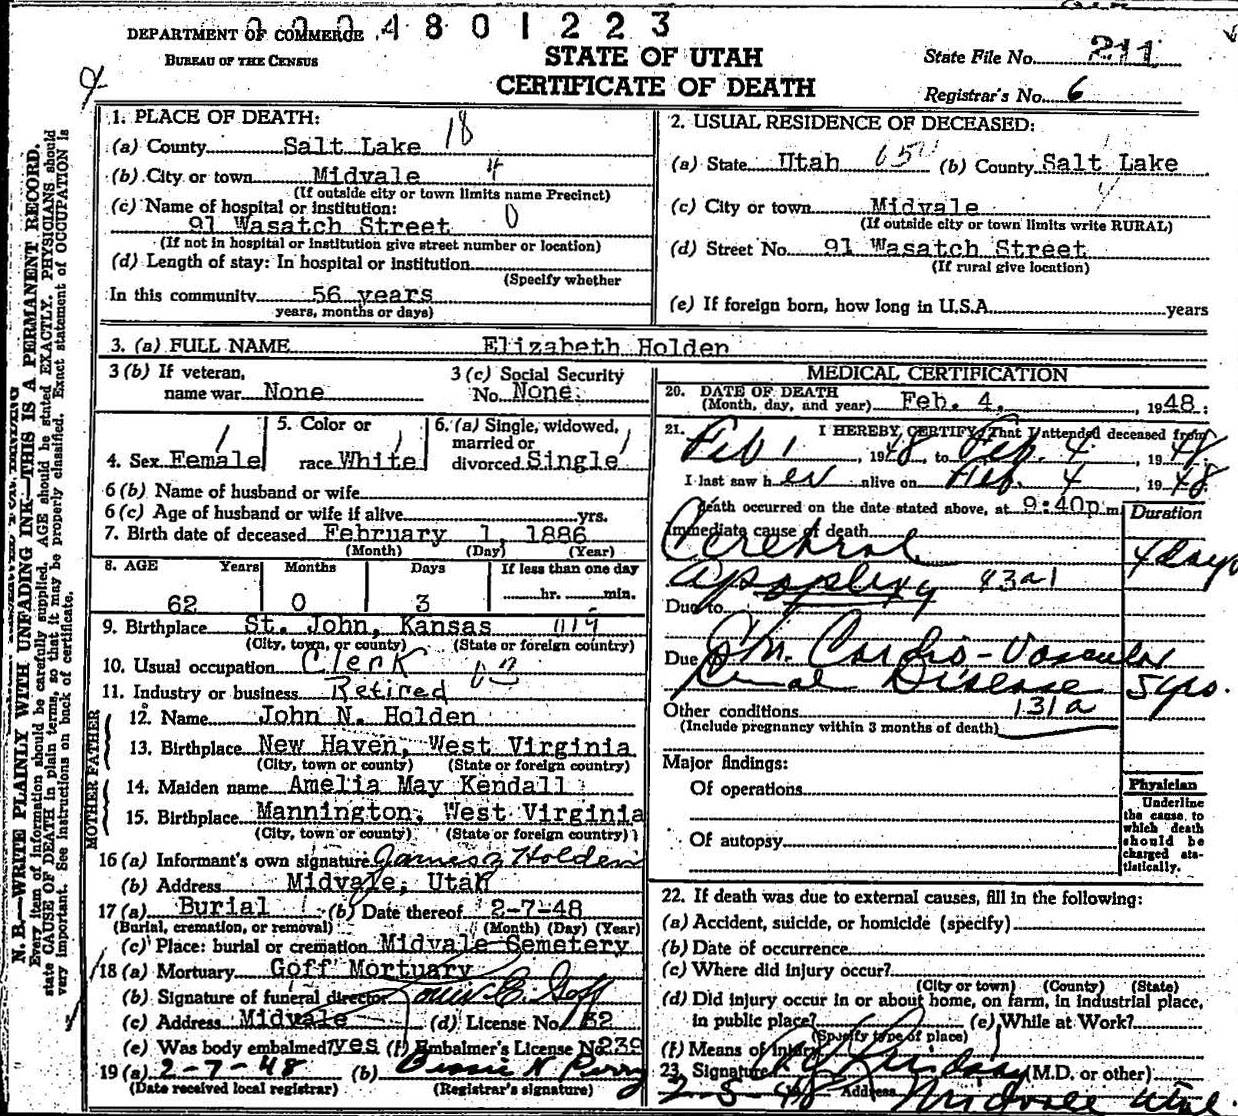 0004801223
DEPARTMENT OF COMMERCE
BUREAU OF THE CENSUS
STATE OF UTAH
CERTIFICATE OF DEATH
State File No. 211
Registrar's No. 6
N. B.—WRITE PLAINLY WITH UNFADING INK—THIS IS A PERMANENT RECORD.
Every item of information should be carefully supplied. AGE should be stated EXACTLY. PHYSICIANS should
state CAUSE OF DEATH in plain terms, so that it may be properly classified. Exact statement of OCCUPATION is
very important. See instructions on back of certificate.
1. PLACE OF DEATH:
(a) County Salt Lake 18
(b) City or town Midvale 4
(If outside city or town limits name Precinct)
(c) Name of hospital or institution:
91 Wasatch Street 0
(If not in hospital or institution give street number or location)
(d) Length of stay: In hospital or institution
(Specify whether
In this community 56 years
years, months or days)
2. USUAL RESIDENCE OF DECEASED:
(a) State Utah (b) County Salt Lake
(c) City or town Midvale
(If outside city or town limits write RURAL)
(d) Street No. 91 Wasatch Street
(If rural give location)
(e) If foreign born, how long in U.S.A. years
3. (a) FULL NAME Elizabeth Holden
3 (b) If veteran,
name war None
3 (c) Social Security
No. None.
4. Sex Female
5. Color or
race White
6. (a) Single, widowed,
married or
divorced Single
6 (b) Name of husband or wife
6 (c) Age of husband or wife if alive yrs.
7. Birth date of deceased February 1, 1886
(Month) (Day) (Year)
8. AGE Years Months Days If less than one day
62 0 3 hr. min.
9. Birthplace St. John, Kansas
(City, town, or county) (State or foreign country)
10. Usual occupation Clerk
11. Industry or business Retired
FATHER
12. Name John N. Holden
13. Birthplace New Haven, West Virginia
(City, town or county) (State or foreign country)
MOTHER
14. Maiden name Amelia May Kendall
15. Birthplace Mannington, West Virginia
(City, town or county) (State or foreign country)
16 (a) Informant's own signature Holden
(b) Address Midvale, Utah
17 (a) Burial (b) Date thereof 2-7-48
(Burial, cremation, or removal) (Month) (Day) (Year)
(c) Place: burial or cremation Midvale Cemetery
18 (a) Mortuary Goff Mortuary
(b) Signature of funeral director Louis E. Goff
(c) Address Midvale (d) License No. 32
(e) Was body embalmed? yes (f) Embalmer's License No. 239
19 (a) 2-7-48 (b) Bessie N Perry
(Date received local registrar) (Registrar's signature)
MEDICAL CERTIFICATION
20. DATE OF DEATH
(Month, day, and year) Feb. 4, , 1948.
21. I HEREBY CERTIFY, That I attended deceased from
Feb 1 , 1948, to Feb. 4 , 1948
I last saw her alive on Feb. 4 , 1948
death occurred on the date stated above, at 9:40p m.
Duration
Immediate cause of death
Cerebral 4 days
apoplexy 43a1
Due to
Due to Chr. Cardio-Vascular
Renal Disease 5 yrs.
Other conditions 131a
(Include pregnancy within 3 months of death)
Major findings:
Of operations
Of autopsy
Physician
Underline
the cause to
which death
should be
charged sta-
tistically.
22. If death was due to external causes, fill in the following:
(a) Accident, suicide, or homicide (specify)
(b) Date of occurrence
(c) Where did injury occur?
(City or town) (County) (State)
(d) Did injury occur in or about home, on farm, in industrial place,
in public place? (e) While at Work?
(Specify type of place)
(f) Means of injury
23. Signature (M.D. or other)
2-5-48 Address Midvale Utah.